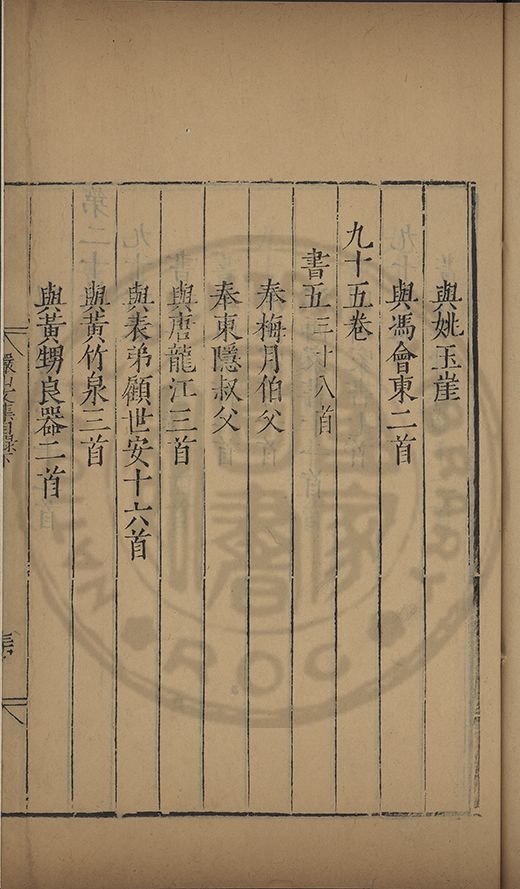 與姚玉崖
與馮會東二首
九十五卷
書五三十八首
奉梅月伯父
奉東隱叔父
與唐龍江三首
與表弟顧世安十六首
與黃竹泉三首
與黃甥良器二首